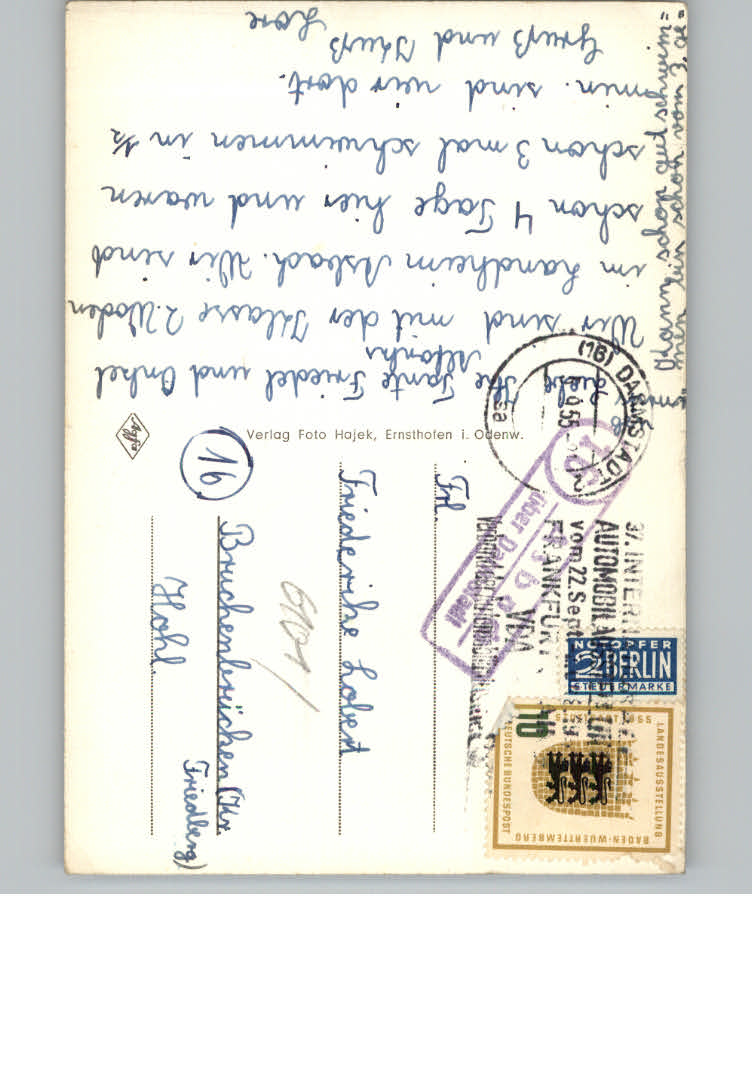 Ihr liebe Tante Friedel und Onkel
Alfons
Wir sind mit der Klasse 2 Wochen
im Landheim Asbach. Wir sind
schon 4 Tage hier und waren
schon 3 mal schwimmen in ½
min. sind wir dort.
Gruß und Kuß
Lore
kann schon gut schwim=
men bin schon vom 3 er
Verlag Foto Hajek, Ernsthofen i. Odenw.
Agfa
(16) DARMSTADT
55
37. INTERN
AUTOMOBIL-AUSSTELLUNG
vom 22. Sept
FRANKFURT
VDA
16
Asbach
über Darmstadt
NOTOPFER
2 BERLIN
STEUERMARKE
LANDESAUSSTELLUNG
BADEN-WUERTTEMBERG
DEUTSCHE BUNDESPOST
STUTTGART 1955
10
Frl.
Friederike Lobert
16
Bruchenbrücken (Kr.
Friedberg)
Hohl.